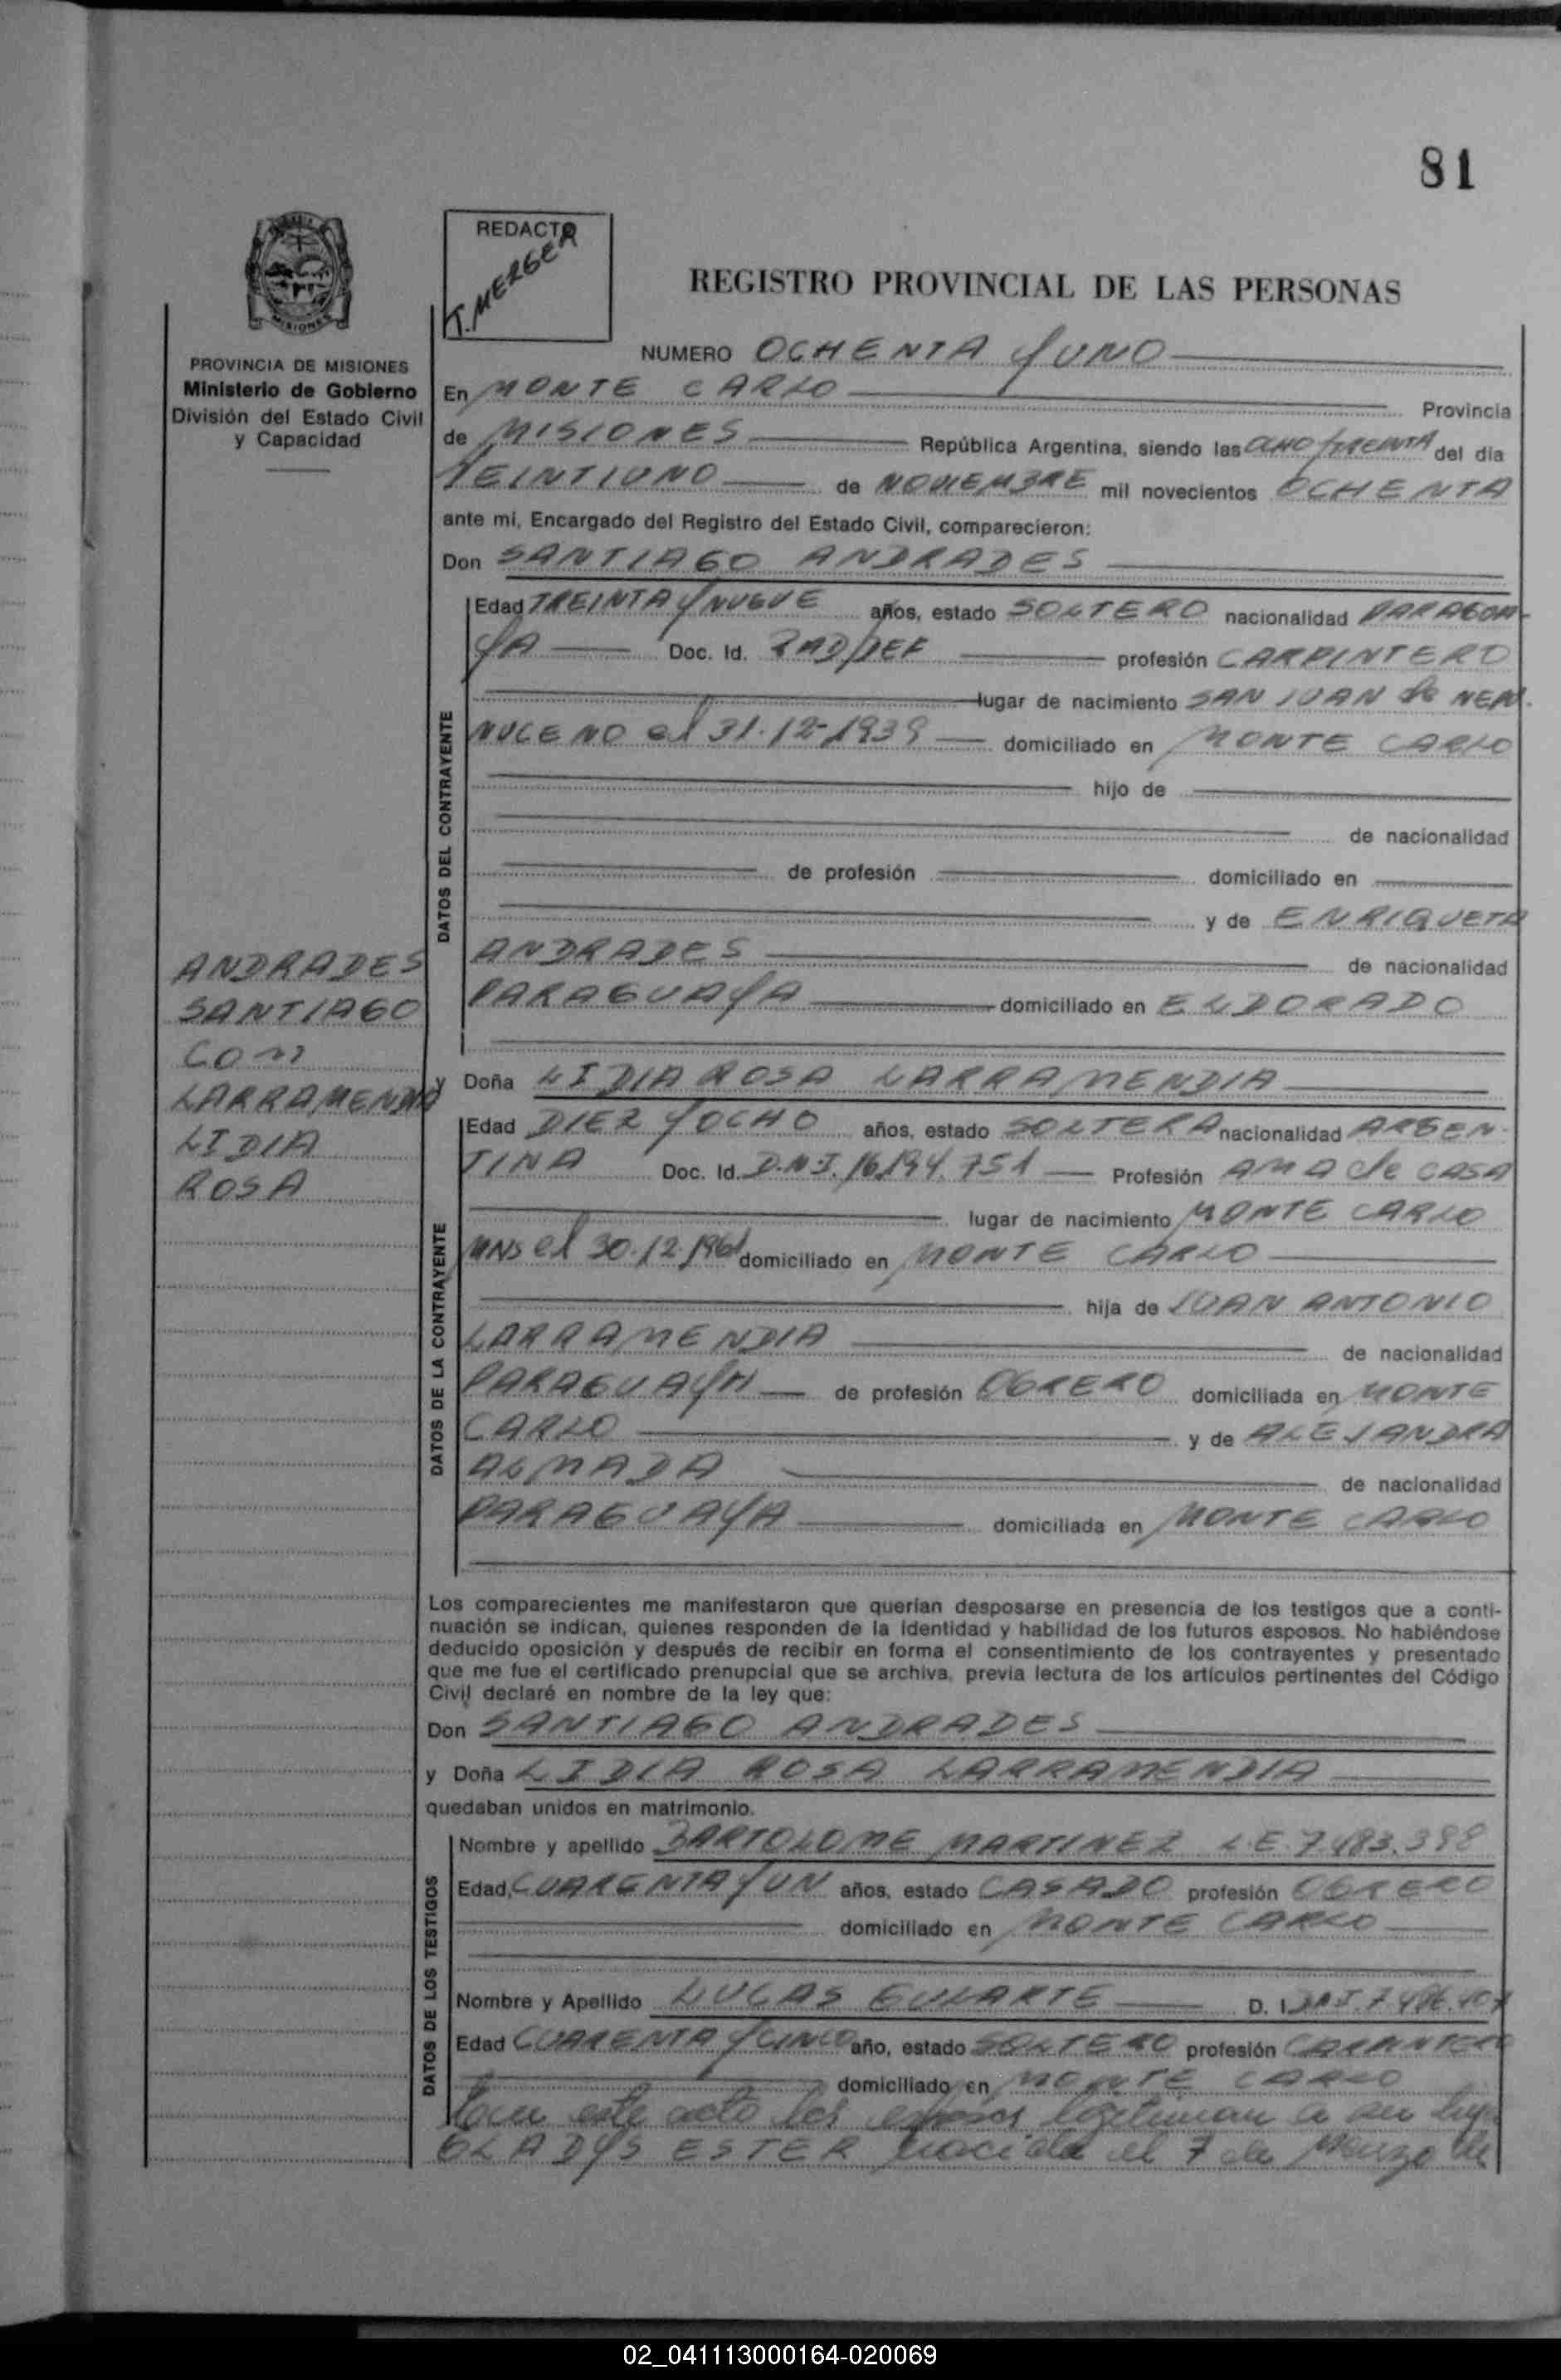 81
REDACTO
T. MERGER
MISIONES
REGISTRO PROVINCIAL DE LAS PERSONAS
PROVINCIA DE MISIONES
Ministerio de Gobierno
División del Estado Civil
y Capacidad
NUMERO OCHENTA Y UNO
En MONTE CARLO Provincia
de MISIONES República Argentina, siendo las OCHO Y TREINTA del día
VEINTIUNO de NOVIEMBRE mil novecientos OCHENTA
ante mi, Encargado del Registro del Estado Civil, comparecieron:
Don SANTIAGO ANDRADES
DATOS DEL CONTRAYENTE
Edad TREINTA Y NUEVE años, estado SOLTERO nacionalidad PARAGUA-
YA Doc. Id. RAD/DEF profesión CARPINTERO
lugar de nacimiento SAN JUAN de NEPO.
MUCENO el 31.12-1939 domiciliado en MONTE CARLO
hijo de
de nacionalidad
de profesión domiciliado en
y de ENRIQUETA
ANDRADES de nacionalidad
PARAGUAYA domiciliado en ELDORADO
ANDRADES
SANTIAGO
con
LARRAMENDIA
LIDIA
ROSA
y Doña LIDIA ROSA LARRAMENDIA
DATOS DE LA CONTRAYENTE
Edad DIEZ Y OCHO años, estado SOLTERA nacionalidad ARGEN-
TINA Doc. Id. D.N.I. 16.194.751 Profesión AMA de CASA
lugar de nacimiento MONTE CARLO
MNS el 30.12.1961 domiciliado en MONTE CARLO
hija de JUAN ANTONIO
LARRAMENDIA de nacionalidad
PARAGUAYA de profesión OBRERO domiciliada en MONTE
CARLO y de ALEJANDRA
ALMADA de nacionalidad
PARAGUAYA domiciliada en MONTE CARLO
Los comparecientes me manifestaron que querían desposarse en presencia de los testigos que a conti-
nuación se indican, quienes responden de la identidad y habilidad de los futuros esposos. No habiéndose
deducido oposición y después de recibir en forma el consentimiento de los contrayentes y presentado
que me fue el certificado prenupcial que se archiva, previa lectura de los artículos pertinentes del Código
Civil declaré en nombre de la ley que:
Don SANTIAGO ANDRADES
y Doña LIDIA ROSA LARRAMENDIA
quedaban unidos en matrimonio.
DATOS DE LOS TESTIGOS
Nombre y apellido BARTOLOME MARTINEZ L.E. 7.483.398
Edad, CUARENTA Y UN años, estado CASADO profesión OBRERO
domiciliado en MONTE CARLO
Nombre y Apellido LUCAS EULARTE D. I.
Edad CUARENTA Y CINCO año, estado SOLTERO profesión CARPINTERO
domiciliado en MONTE CARLO
este acto los esposos legitiman a su hija
GLADYS ESTER nacida el 7 de Marzo de
02_041113000164-020069